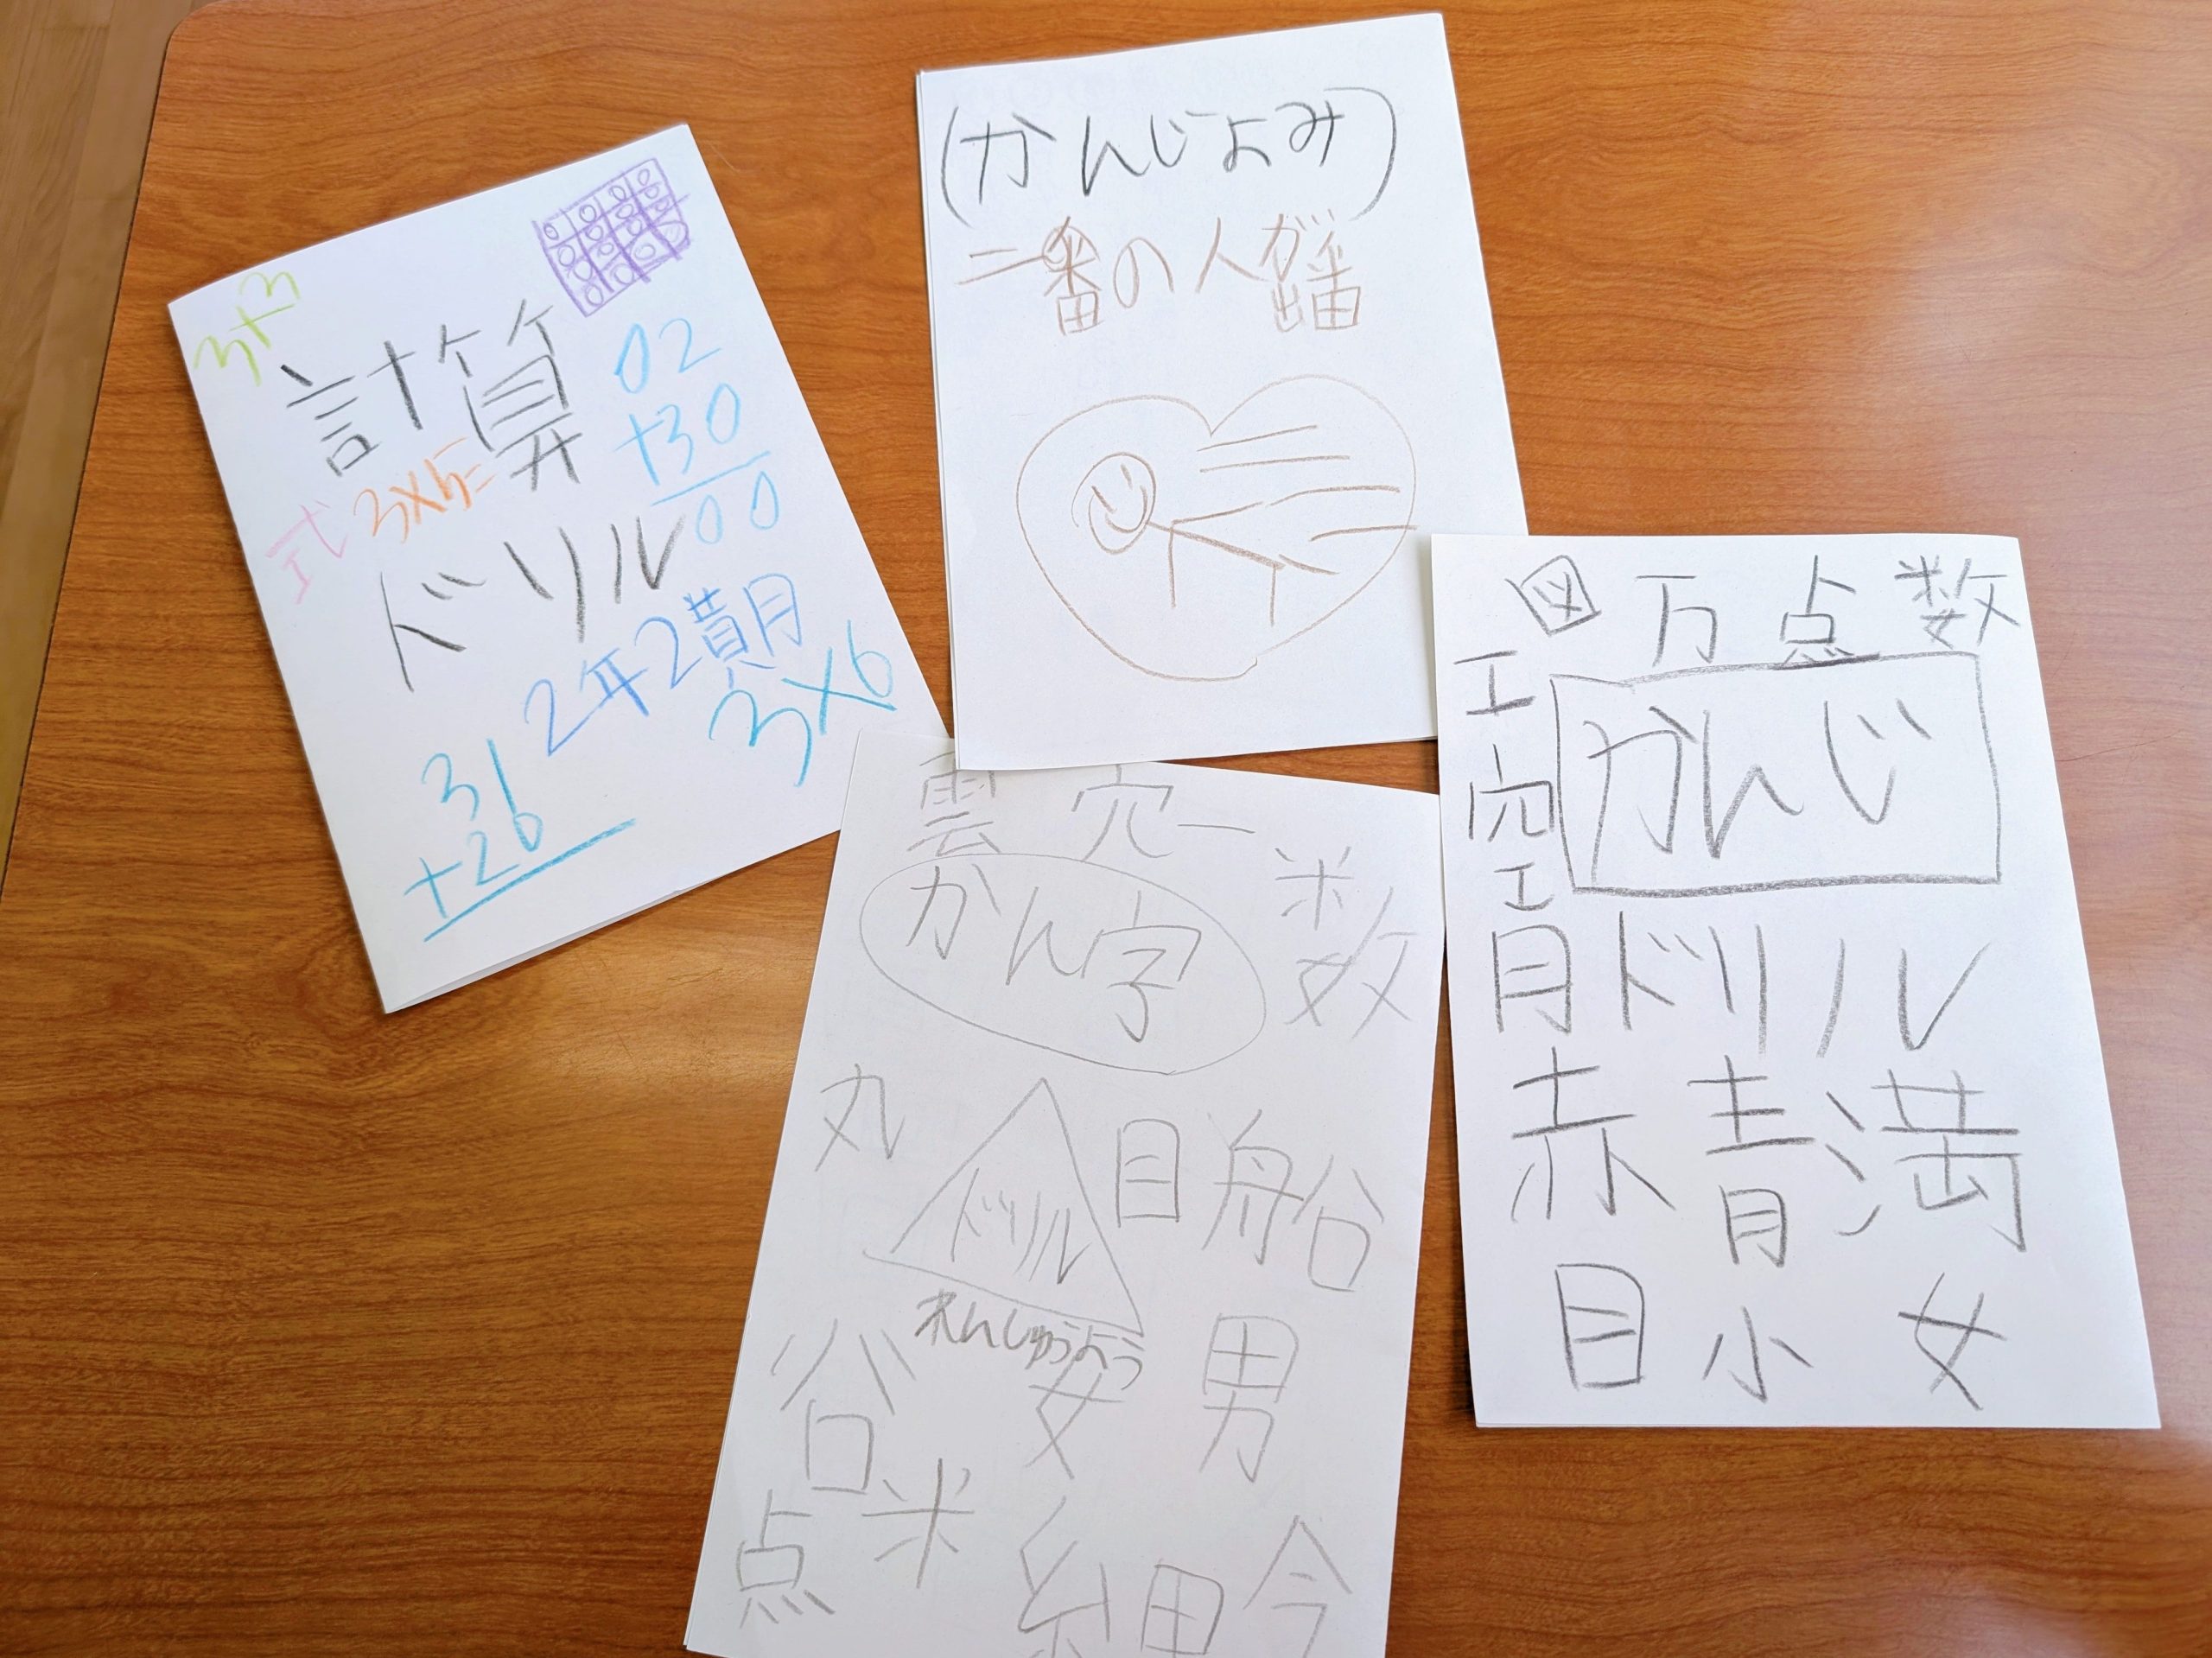 3+3
計算
02
+30
00
式 3×5=
ドリル
2年2月
3×6
31
+26
(かんじよみ)
二番の人が
雲 穴 一
数
かん字
丸
目 船
ドリル
れんしゅうよう
谷 女 男
点 米 細 今
図 万 点 数
工
かんじ
穴
工
月
ドリル
赤 青 満
目 小 女